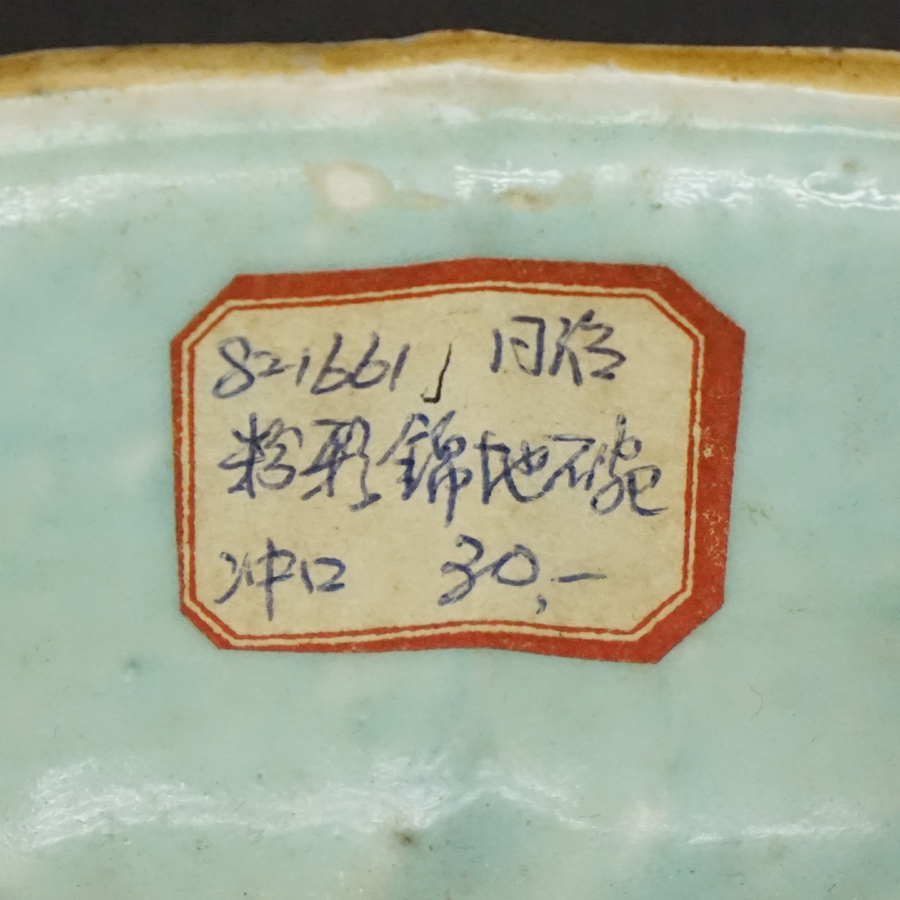 82-1661 同治
粉彩錦地碗
冲口 30,—